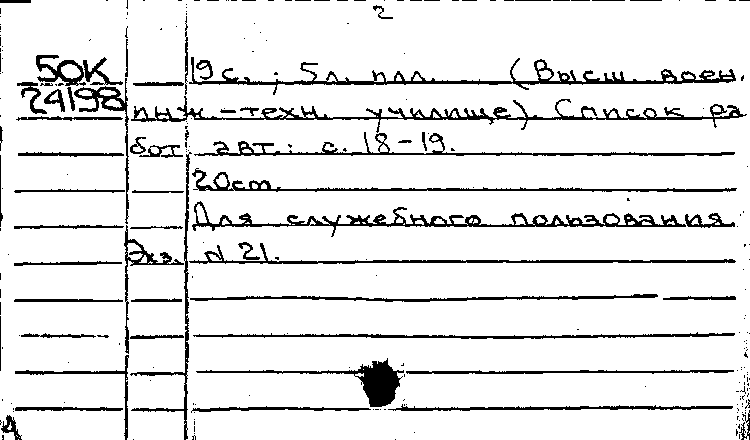 2
50К 19 с. ; 5л. илл. (Высш. воен.
24198 инж.-техн. училище). Список ра
бот авт.: с. 18-19.
20см.
Для служебного пользования
Экз. N 21.